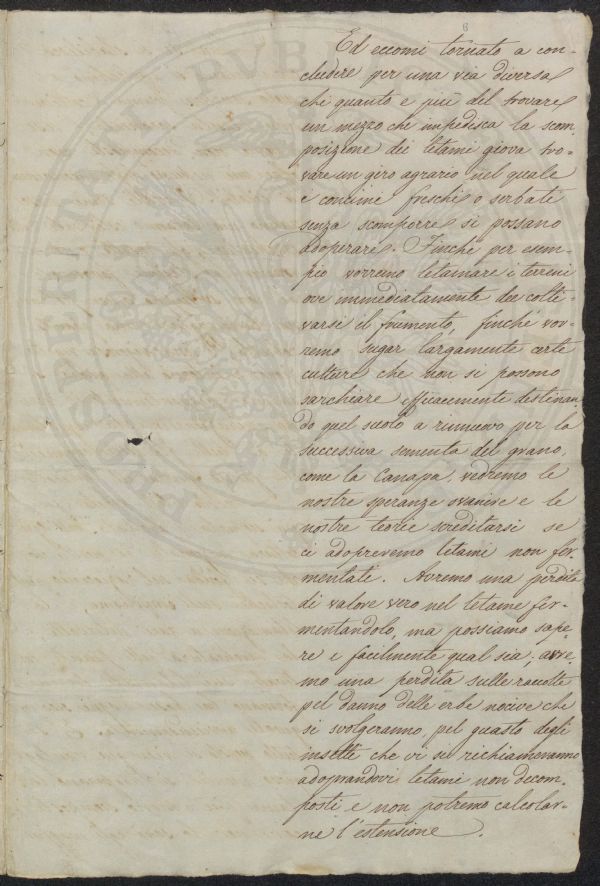 6
Ed eccomi tornato a con-
cludere per una via diversa
che quanto e più del trovare
un mezzo che impedisca la scom-
posizione dei letami giova tro-
vare un giro agrario nel quale
i concimi freschi o serbati
senza scomporre si possano
adoperare. Finchè per esem-
pio vorremo letamare i terreni
ove immediatamente dee colti-
varsi il frumento, finchè vor-
remo sugar largamente certe
culture che non si possono
sarchiare efficacemente destinan-
do quel suolo a rinnuovo per la
successiva sementa del grano,
come la Canapa, vedremo le
nostre speranze svanire e le
nostre teorie screditarsi se
ci adopreremo letami non fer-
mentati. Avremo una perdita
di valore vero nel letame fer-
mentandolo, ma possiamo sape-
re e facilmente qual sia; avre-
mo una perdita sulle raccolte
pel danno delle erbe nocive che
si svolgeranno, pel guasto degli
insetti che vi si richiameranno
adoprandovi letami non decom-
posti e non potremo calcolar-
ne l'estensione.
PROSPERITATI PVBLI